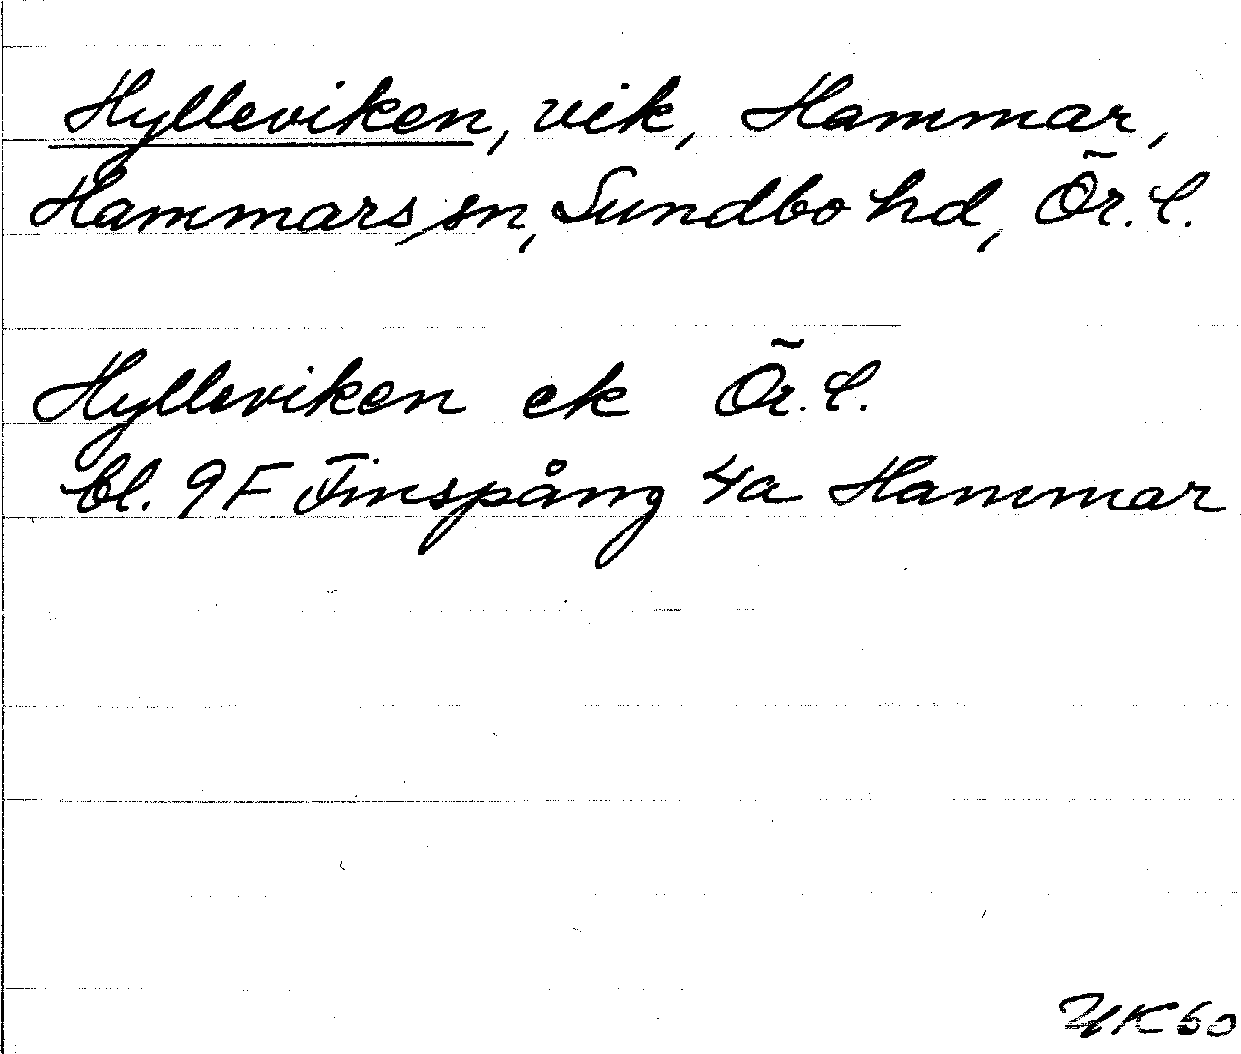 Hylleviken, vik, Hammar,
Hammars sn, Sundbo hd, Ör. l.
Hylleviken ek Ör. l.
bl. 9F Finspång 4a Hammar